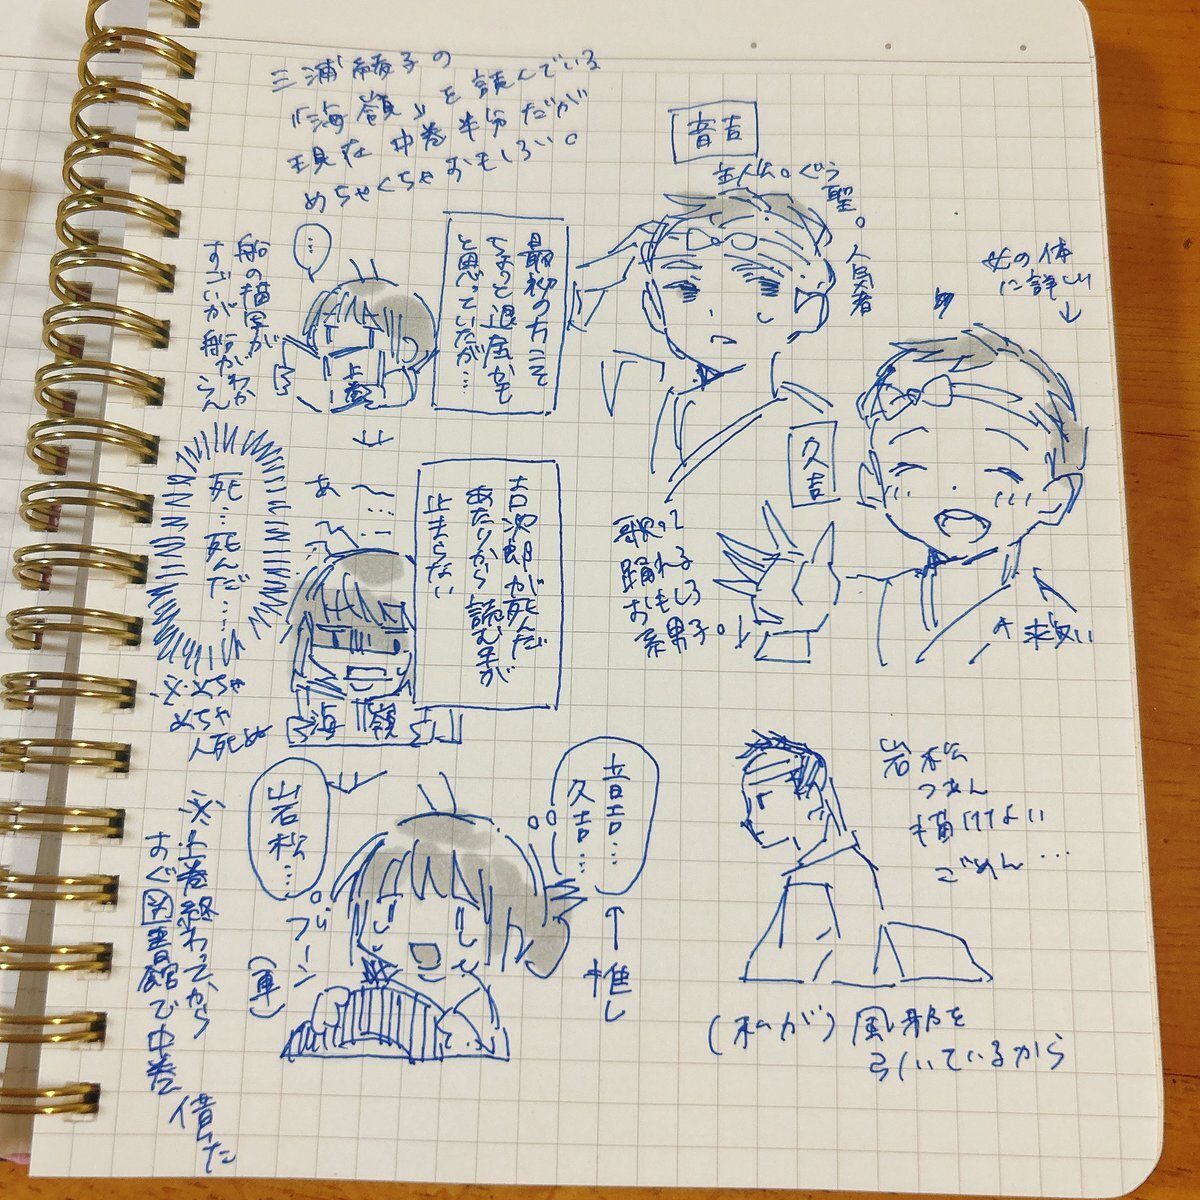 三浦綾子の
『海嶺』を読んでいる
現在中巻半分だが
めちゃくちゃおもしろい。
最初の方こそ
ちょっと退屈かも
と思っていたが…
…
船の描写が
すごいが船がわからん
上巻
吉次郎が死んだ
あたりから読む手が
止まらない
あ〜…
死…死んだ…
※めちゃ
めちゃ
人死ぬ
海嶺
音吉…
久吉…
↑推し
岩松…
ブーン
(車)
※上巻終わってから
すぐ図書館で中巻
借りた
音吉
主人公。ぐう聖。
人気者
女の体
に詳しい
久吉
歌って
踊れる
おもしろ
系男子。
岩松
つぁん
描けてない
ごめん…
(私が)風邪を
引いているから